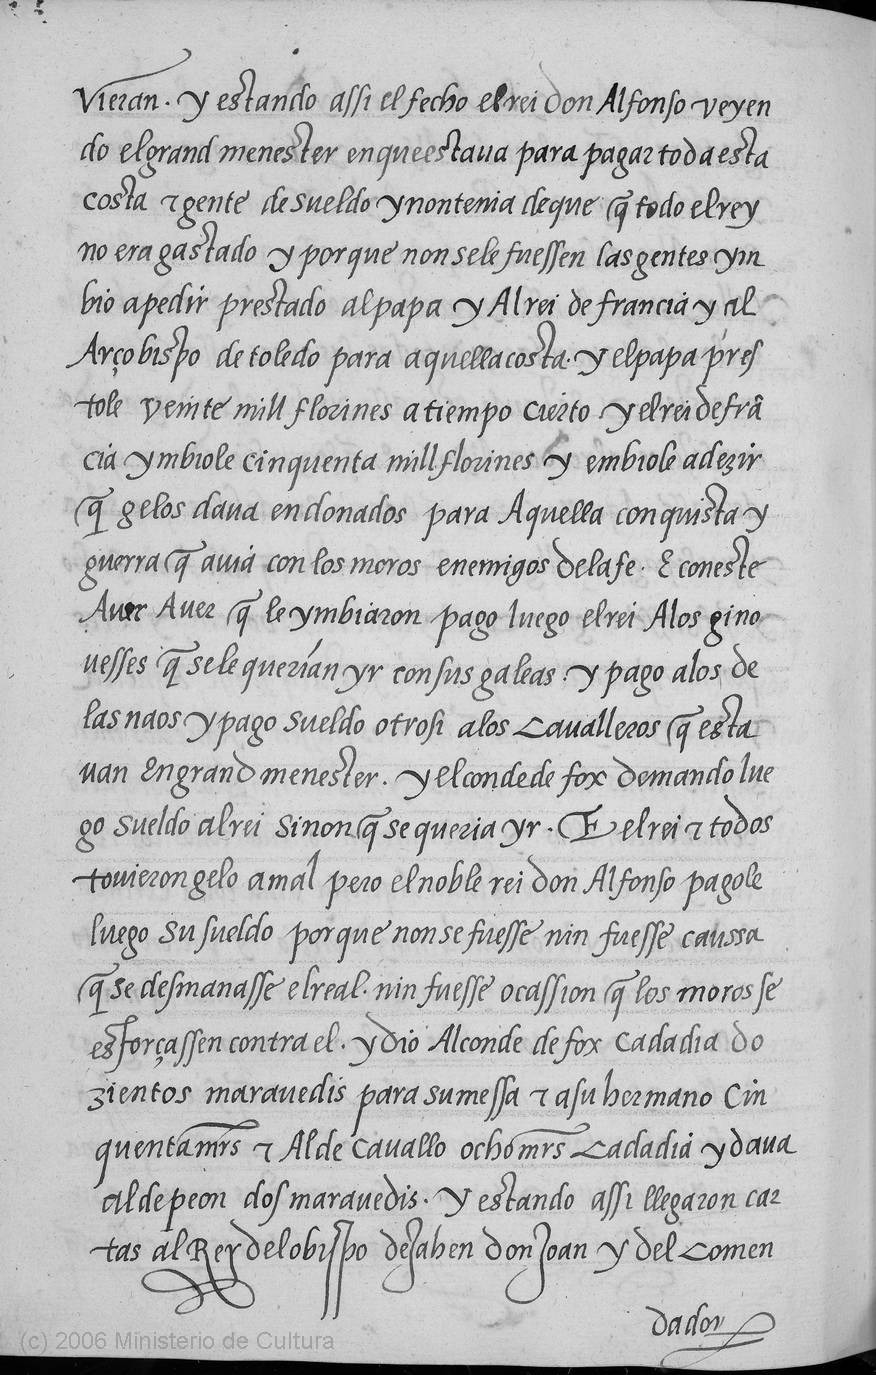 vieran. y estando assi el fecho el rei don Alfonso veyen
do el grand menester en que estaua para pagar toda esta
costa ⁊ gente de sueldo y non tenia de que q̃ todo el rey
no era gastado y porque non sele fuessen las gentes ym
bio a pedir prestado al papa y Al rei de francia y al
Arçobispo de toledo para aquella costa. y el papa pres
tole veinte mill florines a tiempo cierto y el rei de frã
cia ymbiole cinquenta mill florines y embiole a dezir
q̃ gelos daua endonados para Aquella conquista y
guerra q̃ auia con los moros enemigos de la fe. E con este
Auer Auer q̃ le ymbiaron pago luego el rei A los gino
uesses q̃ se le querían yr con sus galeas. y pago a los de
las naos y pago sueldo otrosi a los Caualleros q̃ esta
uan En grand menester. y el conde de fox demando lue
go sueldo al rei sinon q̃ se queria yr. E el rei ⁊ todos
touierongelo a mal pero el noble rei don Alfonso pagole
luego su sueldo porque non se fuesse nin fuesse caussa
q̃ se desmanasse el real. nin fuesse ocassion q̃ los moros se
esforçassen contra el. y dio Al conde de fox cada dia do
zientos marauedis para su messa ⁊ a su hermano Cin
quenta mrs ⁊ Al de cauallo ocho mrs Cada dia y daua
al de peon dos marauedis. y estando assi llegaron car
tas al Rey del obispo de Jahen don Joan y del Comen
dador
(c) 2006 Ministerio de Cultura